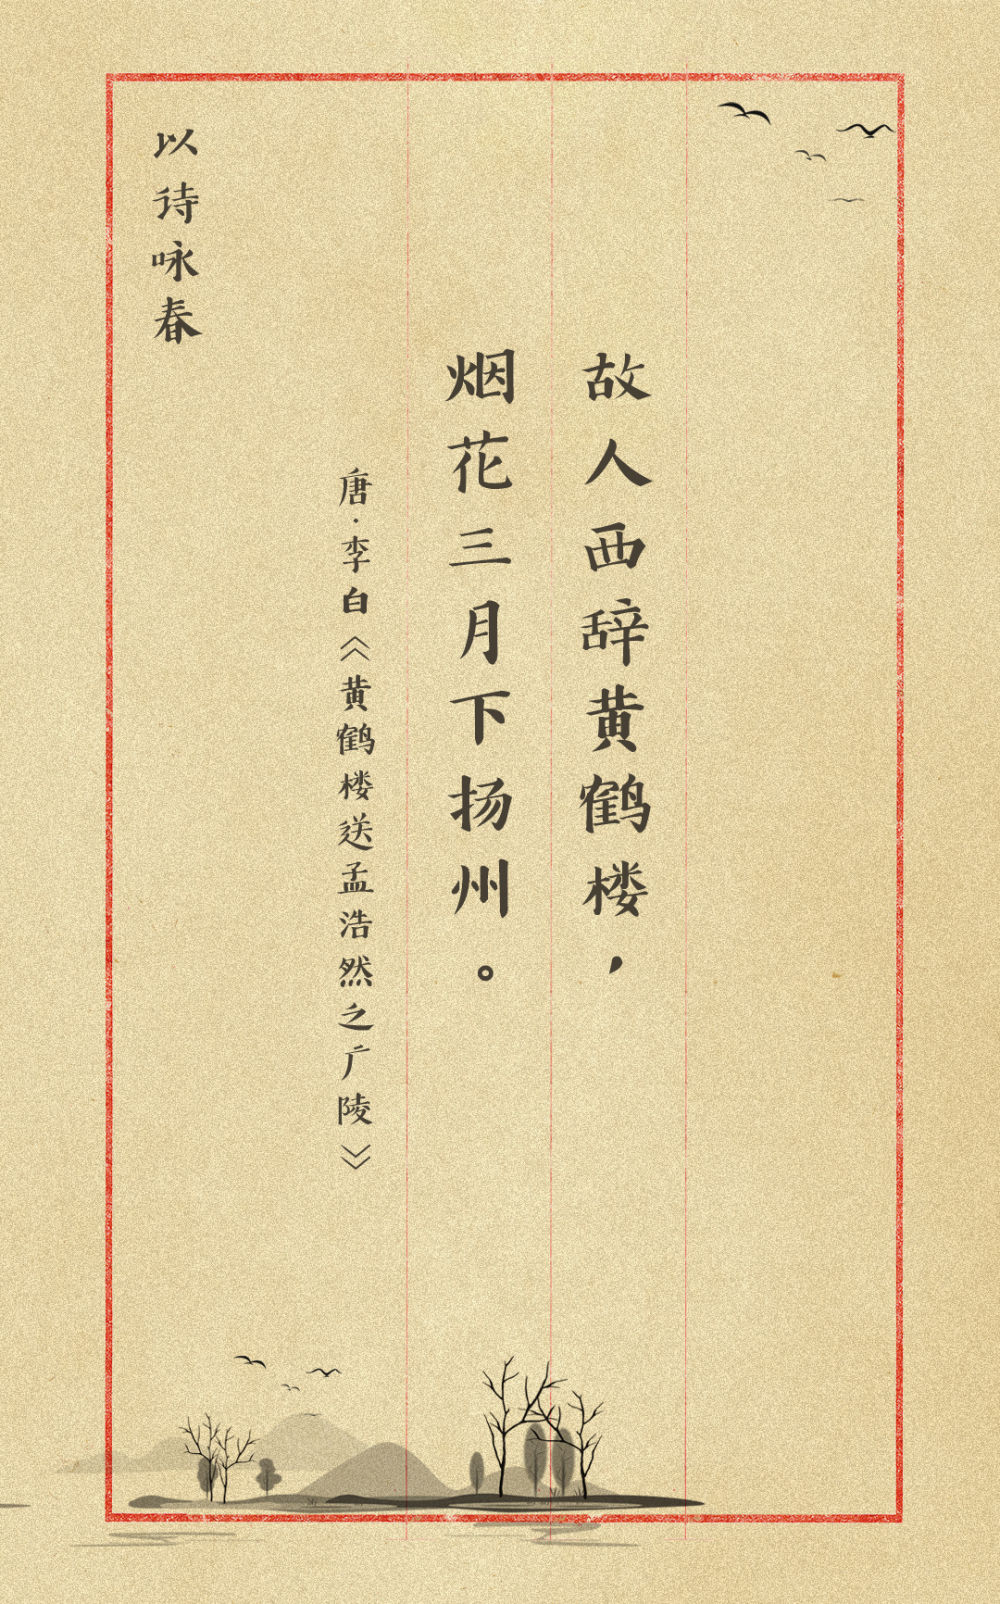 故人西辞黄鹤楼，
烟花三月下扬州。
唐·李白《黄鹤楼送孟浩然之广陵》
以诗咏春